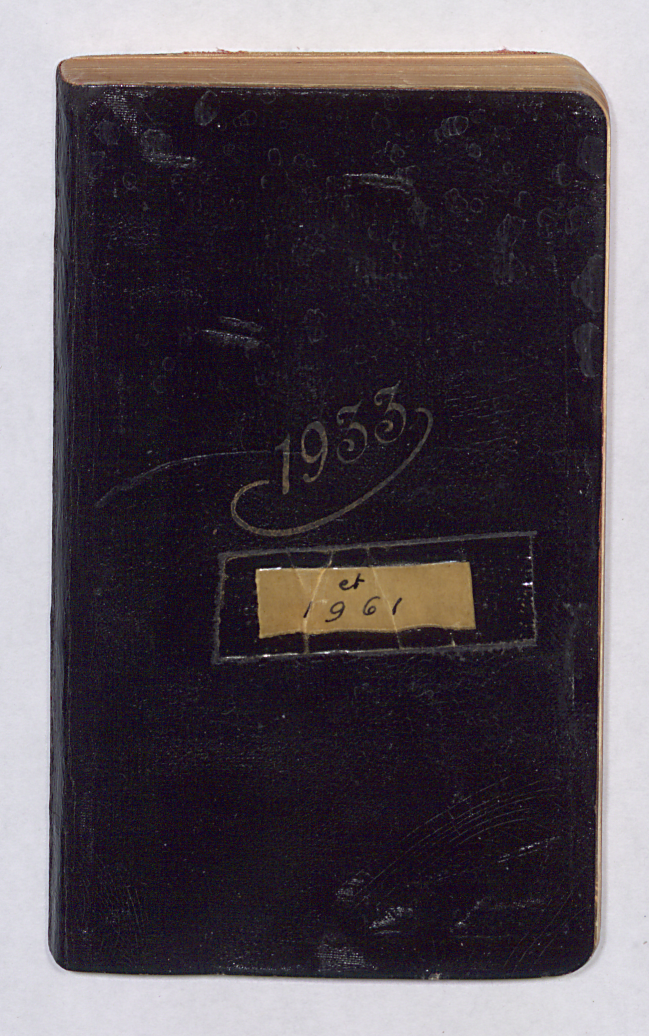 1933
et
1961